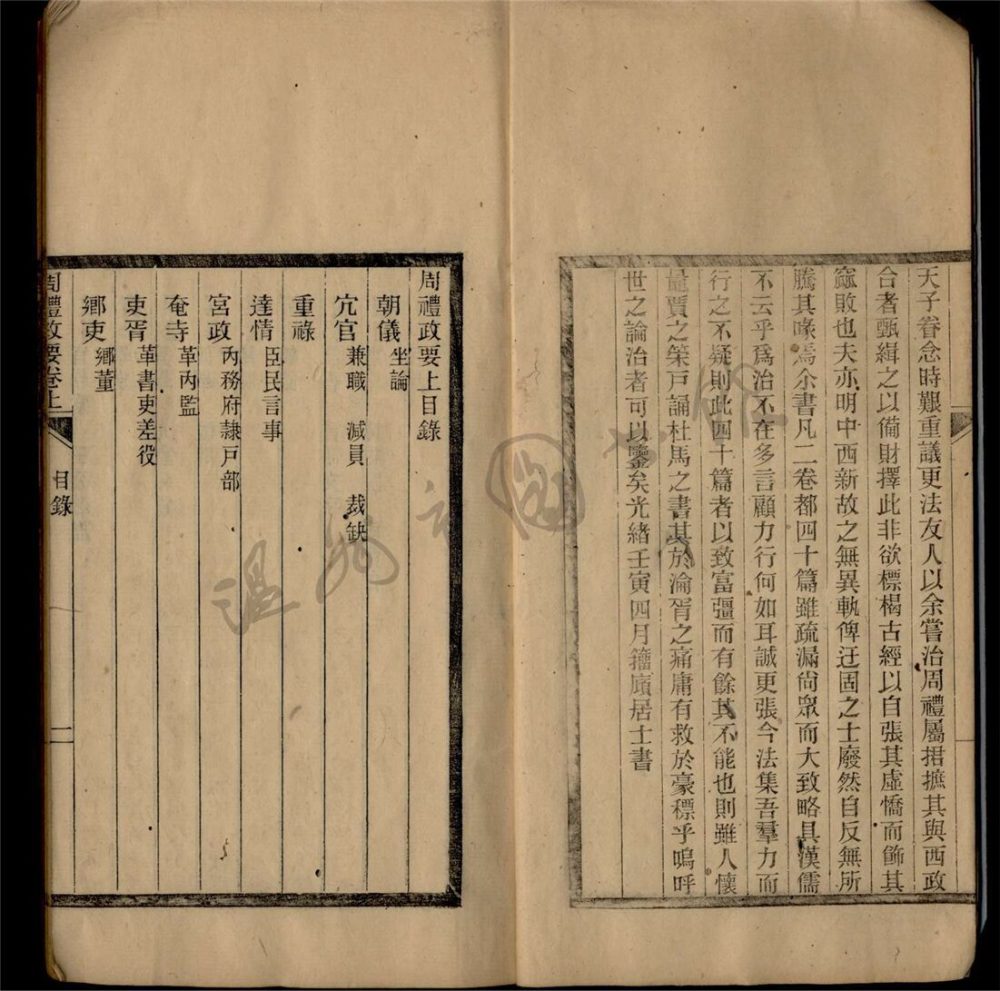 天子眷念時艱重議更法友人以余嘗治周禮屬捃摭其與西政
合者甄緝之以備財擇此非欲標楬古經以自張其虛憍而飾其
窳敗也夫亦明中西新故之無異軌俾迂固之士廢然自反無所
騰其喙焉余書凡二卷都四十篇雖疏漏尙眾而大致略具漢儒
不云乎爲治不在多言顧力行何如耳誠更張今法集吾羣力而
行之不疑則此四十篇者以致富彊而有餘其不能也則雖人懷
量賈之筞戶誦杜馬之書其於淪胥之痛庸有救於豪標乎嗚呼
世之論治者可以鑒矣光緒壬寅四月籀廎居士書
周禮政要上目錄
朝儀 坐論
宂官 兼職 減員 裁缺
重祿
達情 臣民言事
宮政 內務府隷戶部
奄寺 革內監
吏胥 革書吏差役
鄉吏 鄉董
周禮政要卷上 目錄 一
溫州市圖書館